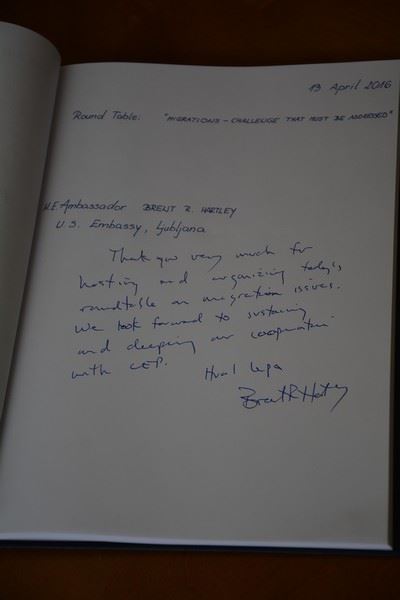 13 April 2016
Round Table: "MIGRATIONS – CHALLENGE THAT MUST BE ADDRESSED"
H.E. Ambassador BRENT R. HARTLEY
U.S. Embassy, Ljubljana
Thank you very much for
hosting and organizing today's
roundtable on migration issues.
We look forward to sustaining
and deeping our cooperation
with CEP.
Hvala lepa
Brent R Hartley